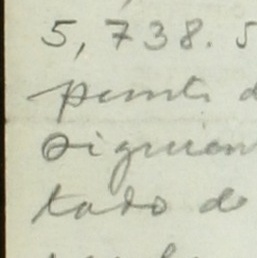 5,738. 5
punto d
siguien
tado de